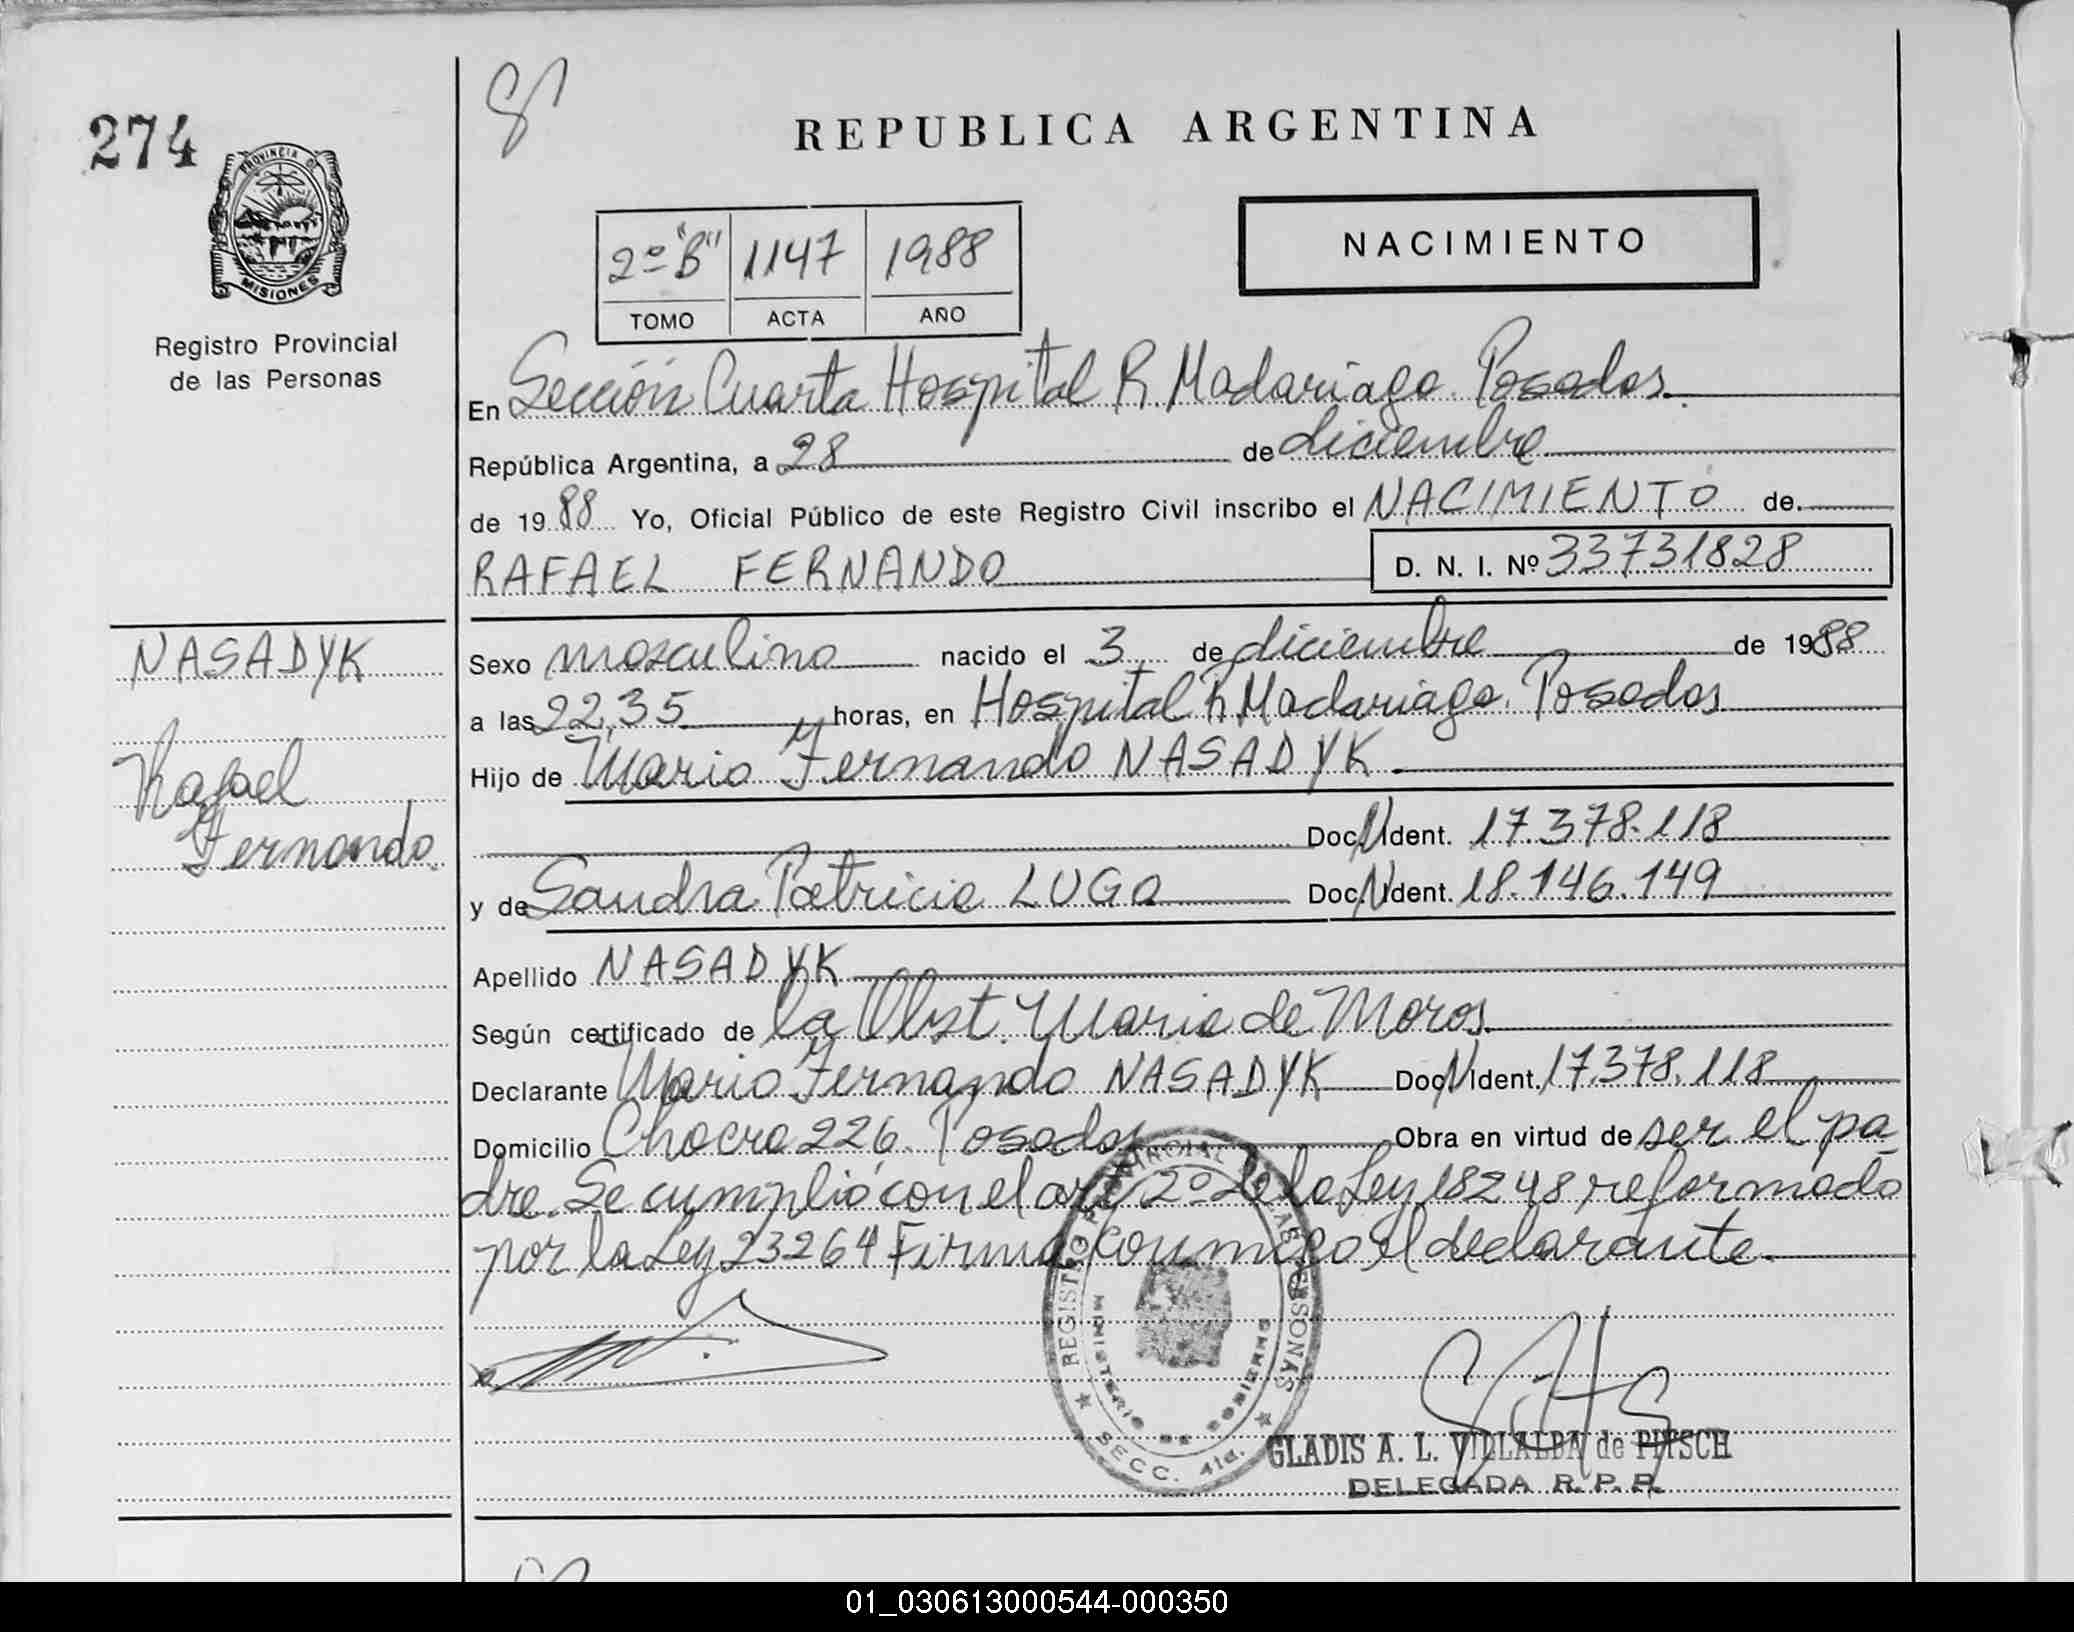 274
PROVINCIA DE
MISIONES
Registro Provincial
de las Personas
NASADYK
Rafael
Fernando.
REPUBLICA ARGENTINA
NACIMIENTO
2º "B" 1147 1988
TOMO ACTA AÑO
En Sección Cuarta Hospital R. Madariaga. Posadas.
República Argentina, a 28 de diciembre
de 1988 Yo, Oficial Público de este Registro Civil inscribo el NACIMIENTO de.
RAFAEL FERNANDO D. N. I. Nº 33731828
Sexo masculino nacido el 3 de diciembre de 1988
a las 22,35 horas, en Hospital R. Madariaga. Posadas
Hijo de Mario Fernando NASADYK.
Doc. N. Ident. 17.378.118
y de Sandra Patricia LUGO Doc. N. Ident. 18.146.149
Apellido NASADYK
Según certificado de la Obst. Maria de Moros.
Declarante Mario Fernando NASADYK Doc. N. Ident. 17.378.118
Domicilio Chacra 226. Posadas Obra en virtud de ser el pa-
dre. Se cumplió con el art. 2º de la Ley 18248 reformado
por la Ley 23264 Firma conmigo el declarante.
REGISTRO PROVINCIAL DE LAS PERSONAS
MINISTERIO DE GOBIERNO
SECC. 4ta.
GLADIS A. L. VILLALBA de PITSCH
DELEGADA R. P. P.
01_030613000544-000350